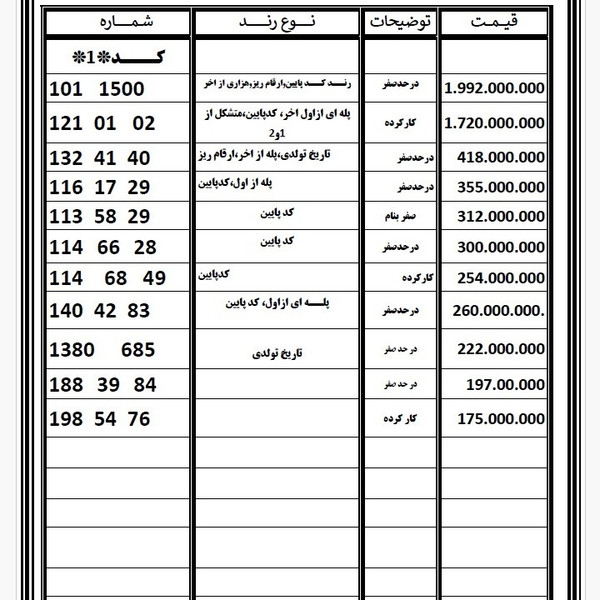 شمــاره نــوع رنــد توضیحات قیـمـت
کــــد*1*
101 1500 رنــد کــد پایین,ارقام ریز,هزاری از اخر درحدصفر 1.992.000.000
121 01 02 پله ای ازاول اخر، کدپایین،متشکل از 1و2 کارکرده 1.720.000.000
132 41 40 تاریخ تولدی،پله از اخر،ارقام ریز درحدصفر 418.000.000
116 17 29 پله از اول،کدپایین درحدصفر 355.000.000
113 58 29 کد پایین صفر بنام 312.000.000
114 66 28 کد پایین درحدصفر 300.000.000
114 68 49 کدپایین کارکرده 254.000.000
140 42 83 پلــه ای ازاول، کد پایین درحدصفر 260.000.000.
1380 685 تاریخ تولدی در حد صفر 222.000.000
188 39 84 در حد صفر 197.00.000
198 54 76 کار کرده 175.000.000